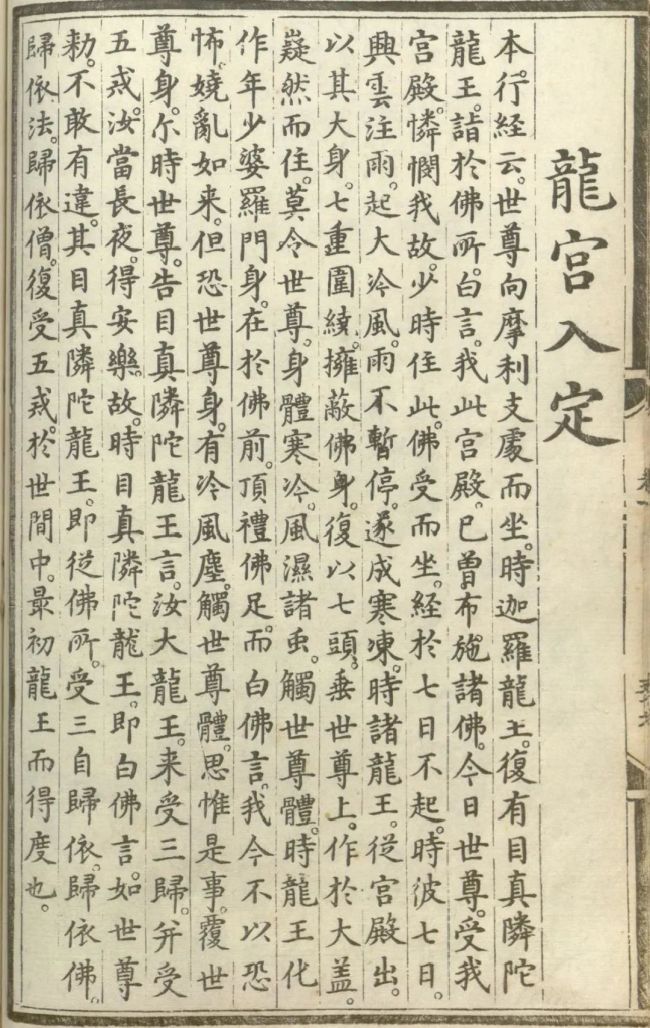 龍宮入定
本行經云。世尊向摩利支處而坐。時迦羅龍王。復有目真隣陀
龍王。詣於佛所。白言。我此宮殿。已曾布施諸佛。今日世尊。受我
宮殿。憐愍我故。少時住此。佛受而坐。經於七日不起。時彼七日。
興雲注雨。起大冷風。雨不暫停。遂成寒凍。時諸龍王。從宮殿出。
以其大身。七重圍繞。擁蔽佛身。復以七頭。垂世尊上。作於大盖。
嶷然而住。莫令世尊。身體寒冷。風濕諸虫。觸世尊體。時龍王化
作年少婆羅門身。在於佛前。頂禮佛足。而白佛言。我今不以恐
怖。嬈亂如来。但恐世尊身。有冷風塵。觸世尊體。思惟是事。覆世
尊身。尔時世尊。告目真隣陀龍王言。汝大龍王。来受三歸。并受
五戒。汝當長夜。得安樂故。時目真隣陀龍王。即白佛言。如世尊
勑。不敢有違。其目真隣陀龍王。即從佛所。受三自歸依。歸依佛。
歸依法。歸依僧。復受五戒。於世間中。最初龍王而得度也。